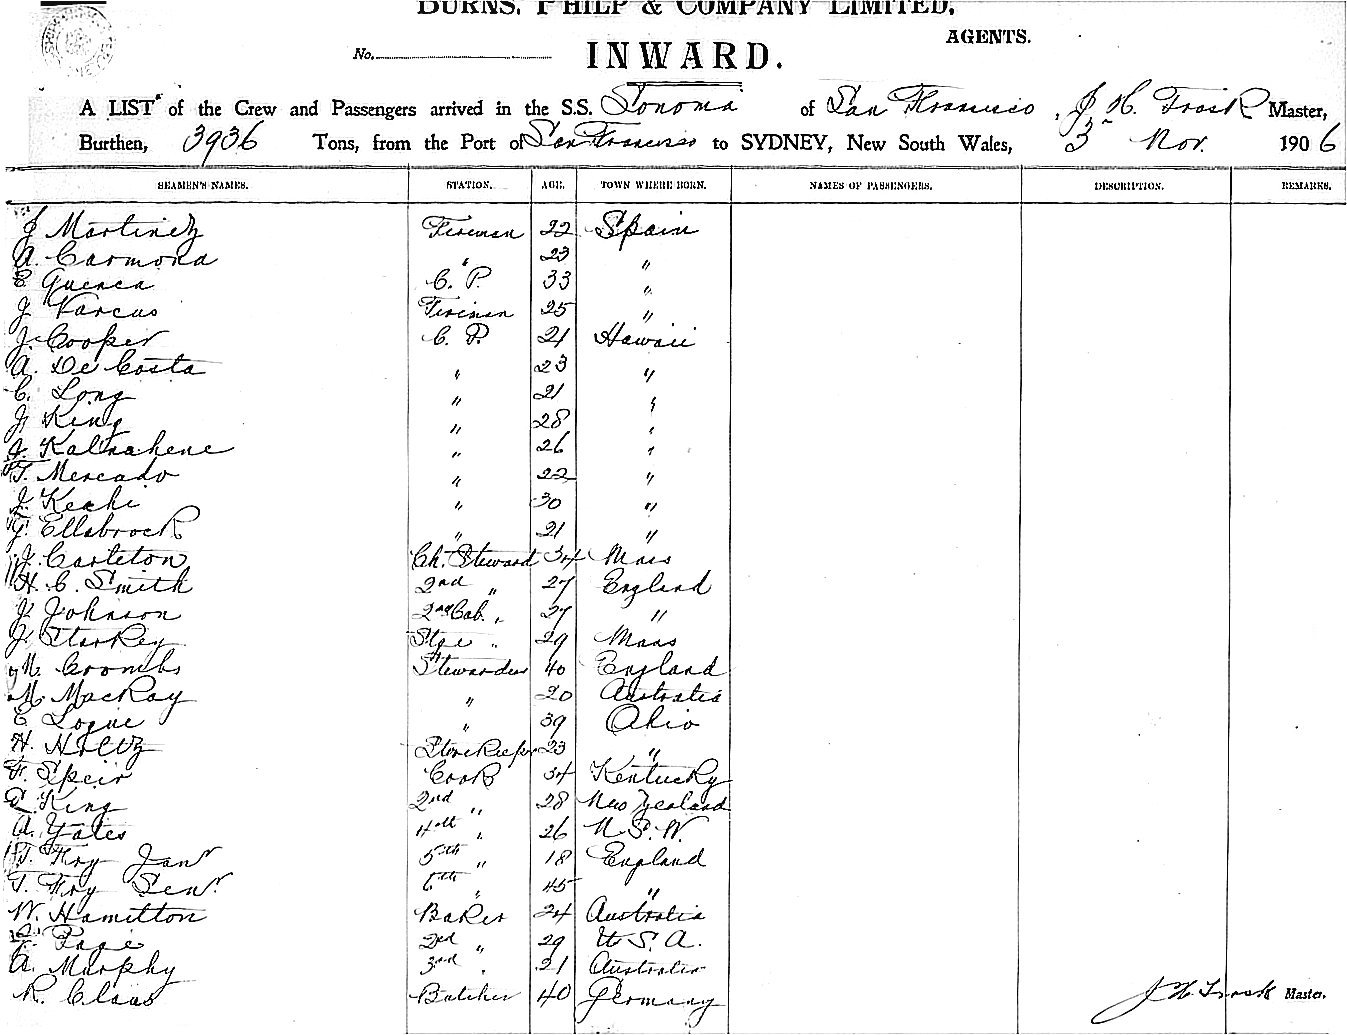 BURNS, PHILP & COMPANY LIMITED,
AGENTS.
No. INWARD.
A LIST of the Crew and Passengers arrived in the S.S. Sonoma of San Francisco, J H. Trask Master,
Burthen, 3936 Tons, from the Port of San Francisco to SYDNEY, New South Wales, 3 Nov. 1906
SEAMEN'S NAMES. STATION. AGE. TOWN WHERE BORN. NAMES OF PASSENGERS. DESCRIPTION. REMARKS.
J Martinez Fireman 22 Spain
A. Carmona " 23 "
E Guenca C. P. 33 "
J Varcus Fireman 25 "
J. Cooper C. P. 21 Hawaii
A. De Costa " 23 "
C. Long " 21 "
J. King " 28 "
J. " 26 "
T. Mercado " 22 "
J. Keahi " 30 "
J. Ellsbrock " 21 "
J. Carleton Ch. Steward 34 Mass
H. C. Smith 2nd " 27 England
J. Johnson 2nd Cab. " 27 "
J. Starkey Stge " 29 Mass
M. Crombs Stewardess 40 England
M. MacKay " 20 Australia
E Logue " 39 Ohio
H. Holtz Storekeeper 23 "
F. Speir Cook 34 Kentucky
L. King 2nd " 28 New Zealand
A. Yates 4th " 26 N S. W.
T. Foy Junr 5th " 18 England
T. Foy Senr. 6th " 45 "
W. Hamilton Baker 24 Australia
Page 2nd " 29 U. S. A.
A. Murphy 3rd " 21 Australia
R. Claus Butcher 40 Germany
J H. Trask Master.